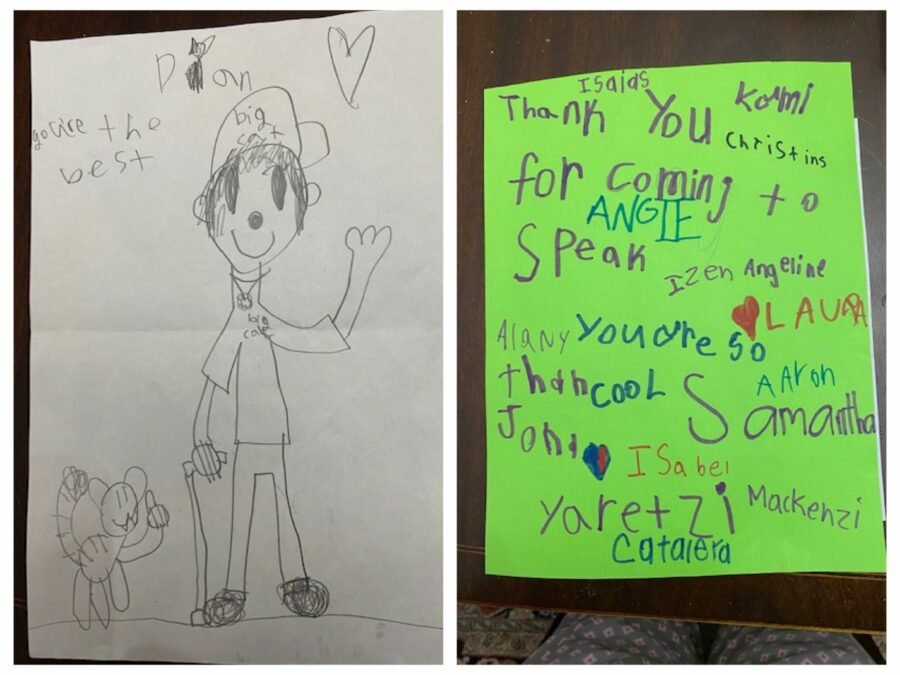 D an
you're the
best
big
cat
big
cat
Isaias
Thank You
Kami
Christins
for coming to
ANGIE
Speak
Izen Angeline
LAURA
Alany You are so
than COOL
AAron
Samantha
Jona
ISabel
Yaretzi
Mackenzi
Catalera